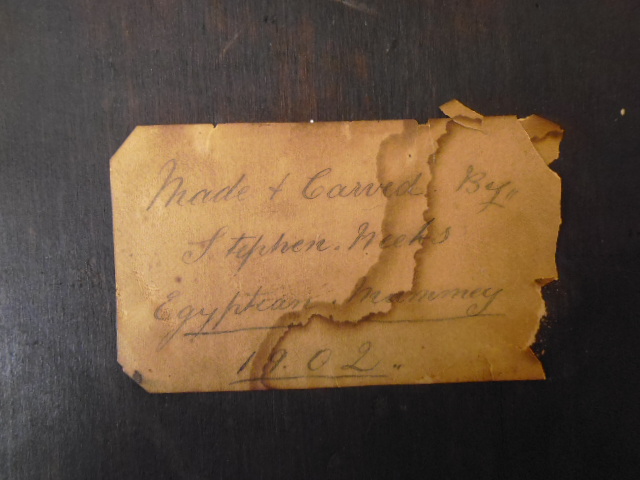 Made & Carved. By,,
Stephen. Weeks
Egyptian. Mummey
19.02.,,